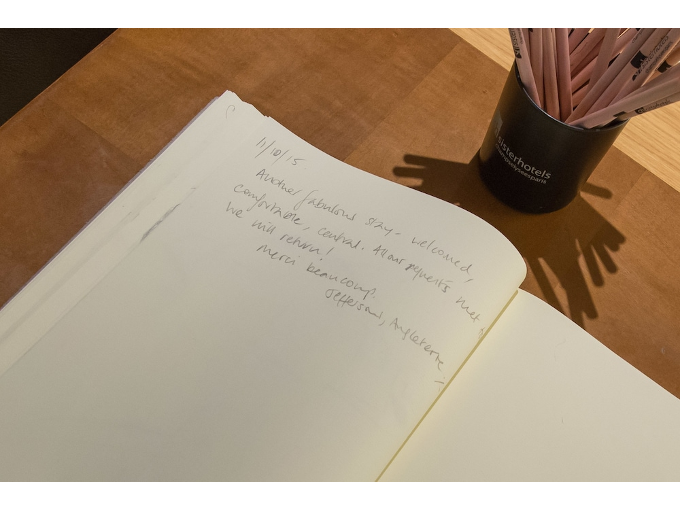 11/10/15
Another fabulous stay - welcomed,
comfortable, central. All our requests met
We will return!
Merci beaucoup!
Jeffersons, Angleterre
sisterhotels